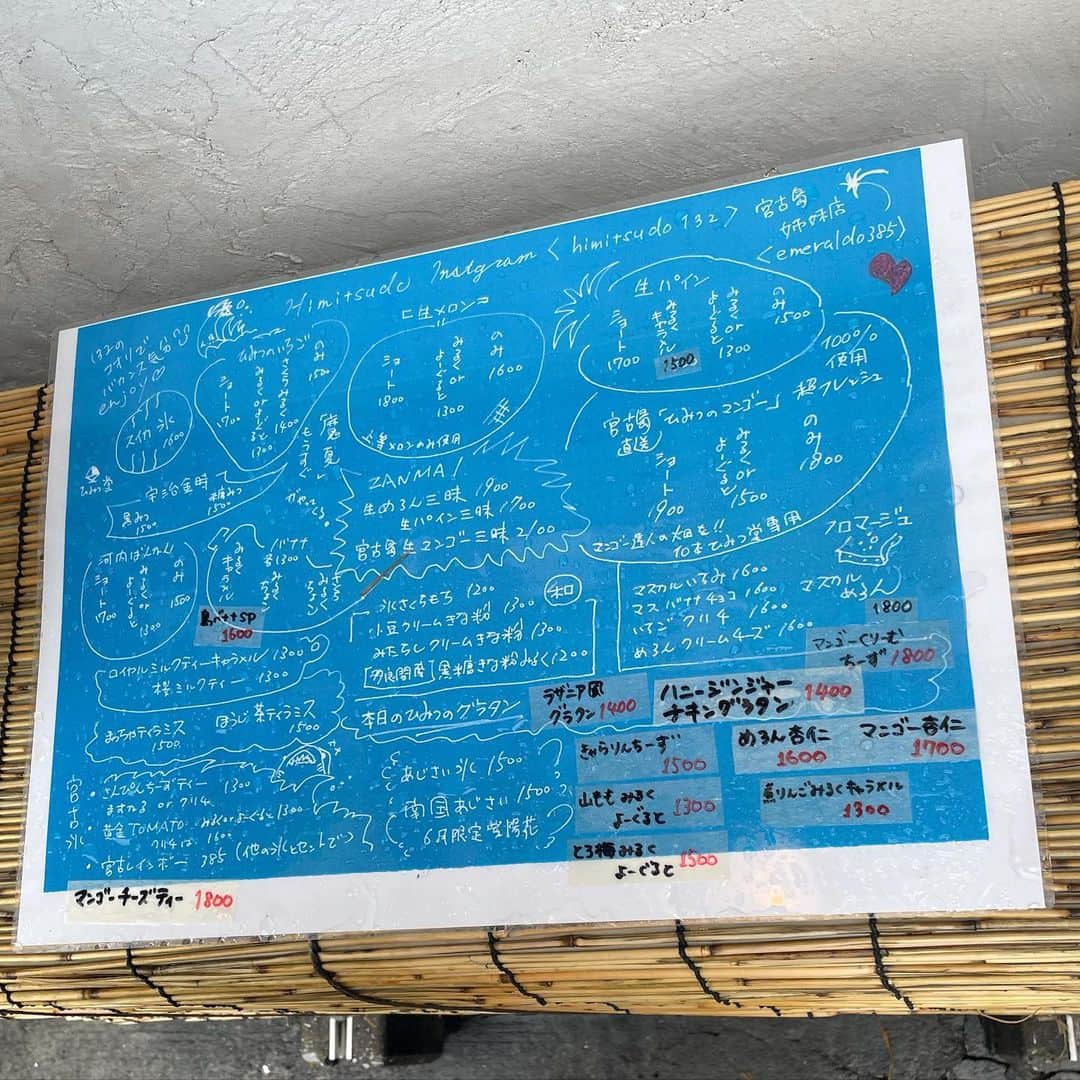 Himitsudo Instgram <himitsudo132> 宮古島
姉妹店
<emeraldo385>
132の
バカンス気分
enjoy♡
スイカ氷
1600
ひみつのいちご
のみ 1500
さくらみるく 1400
みるく or よーぐると 1300
ショート 1700
生メロン
のみ 1600
みるく or よーぐると 1300
ショート 1800
メロンのみ使用
生パイン
のみ 1500
みるく or よーぐると 1300
キャラメル 1500
ショート 1700
100%
使用
超フレッシュ
宮古島
直送
「ひみつのマンゴー」
のみ 1800
みるく or よーぐると 1500
ショート 1900
マンゴー達人の畑を!!
ひみつ堂専用
ひみつ堂
宇治金時
黒みつ 1500
糖みつ 1500
もうすぐ
やってくる
ZANMAI
生めろん三昧 1900
生パイン三昧 1700
宮古島生マンゴー三昧 2100
河内ばんかん
のみ 1500
みるく or よーぐると 1300
ショート 1700
バナナ
島バナナSP
1600
和
氷さくらもち 1200
小豆クリームきな粉 1300
みたらしクリームきな粉 1300
「多良間産」黒糖きな粉みるく 1200
フロマージュ
マスカルいちみ 1600
マスバナナチョコ 1600
いちごクリチ 1600
めろんクリームチーズ 1600
マスカル
めろん
1800
マンゴーくりーむ
ちーず 1800
ロイヤルミルクティーキャラメル 1300
桜ミルクティー 1300
まっちゃティラミス
1500
ほうじ茶ティラミス
1500
本日のひみつのグラタン
ラザニア風
グラタン 1400
ハニージンジャー
チキングラタン 1400
きゃらりんちーず
1500
めろん杏仁
1600
マンゴー杏仁
1700
山もも みるく
よーぐると 1300
煮りんごみるくキャラメル
1300
とろ梅みるく
よーぐると 1500
あじさい氷 1500
南国あじさい 1500
6月限定 紫陽花
宮古氷
・さんぴんちーずティー 1300
マスカる or クリチ
・黄金TOMATO みるく or よーぐると 1300
クリチは 1600
・宮古レインボー 385 (他の氷とセットで)
マンゴーチーズティー 1800